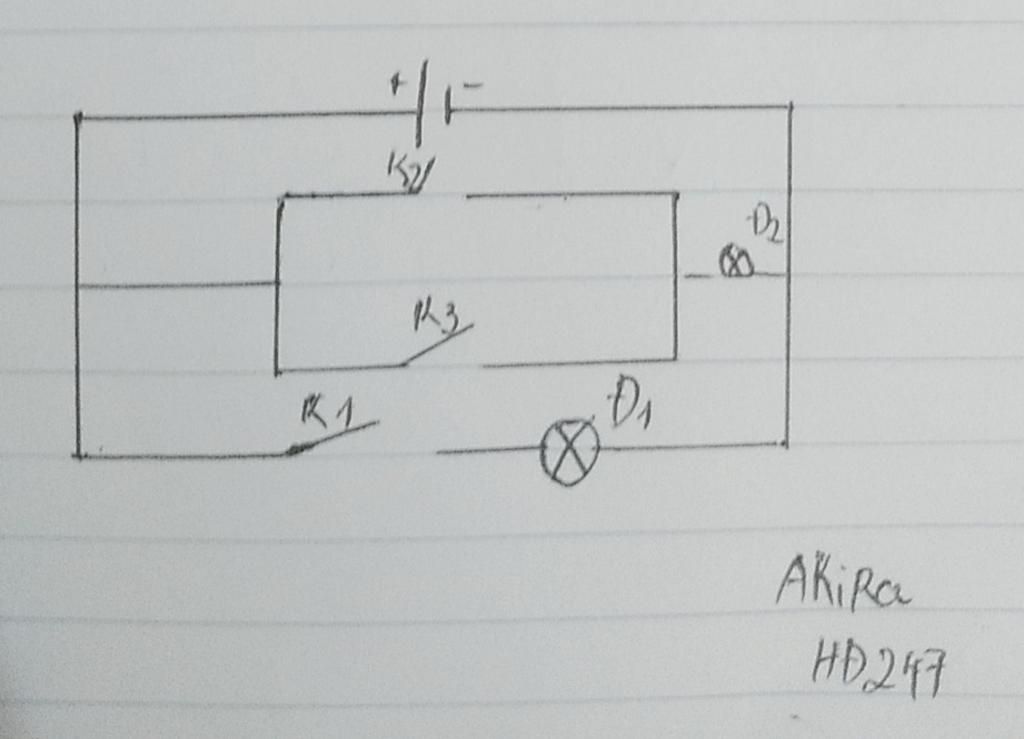 + -
K2
Đ2
K3
K1
Đ1
AKiRa
HD247